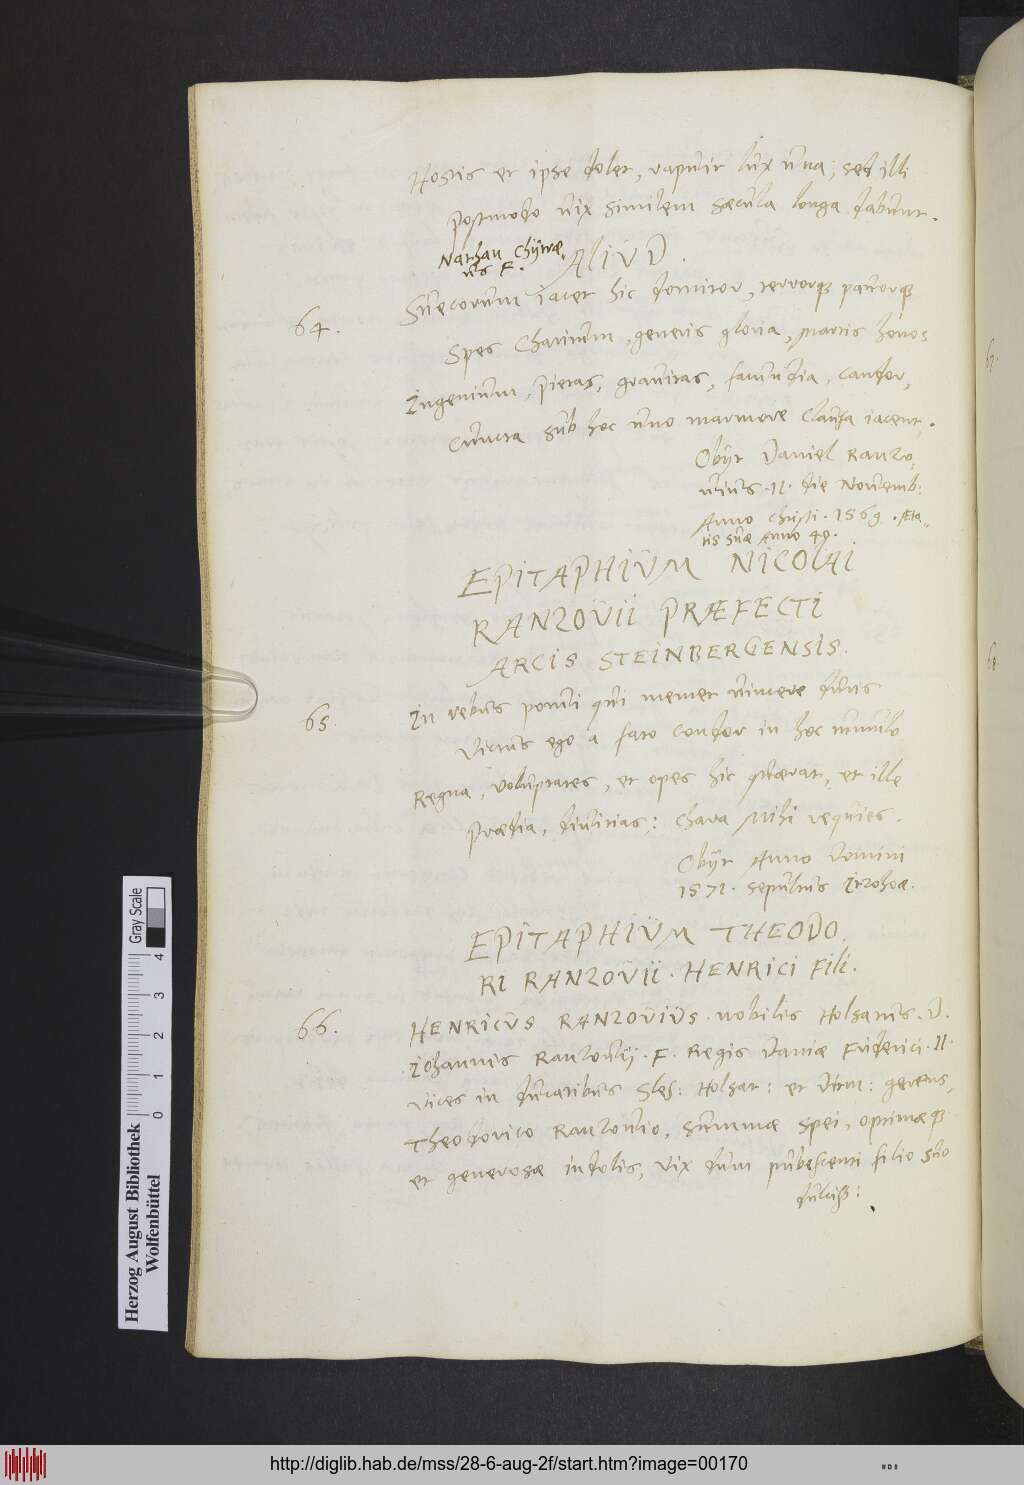 Hostis et ipse dolet, rapuit lux una; sed illi
postmodo vix similem sæcula longa dabunt.
Nathan Chÿtræ
us F. ALIUD.
64. Suecorum iacet hic domitor, terrorq; pavorq;
Spes Charitum, generis gloria, Martis honos
Ingenium, pietas, gravitas, facundia, candor,
Cuncta sub hoc uno marmore clausa iacent.
Obÿt Daniel Ranzo-
uius. 11. die Novemb:
Anno Christi. 1569. Æta-
tis suæ Anno 40.
EPITAPHIÜM NICOLAI
RANZOÜII PRÆFECTI
ARCIS STEINBERGENSIS.
65. In rebus potui qui memet vincere duris
Victus ego a fato condor in hoc tumulo
Regna, voluptates, et opes hic quærat, et ille
Prædia, divitias: chara mihi requies.
Obÿt Anno Domini
1571. sepultus Itzohoæ.
EPITAPHIÜM THEODO
RI RANZOÜII. HENRICI Fili.
66. HENRICUS RANZOÜIÜS. nobilis Holsatus. D.
Iohannis Ranzovij. F. Regis Daniæ Friderici. II.
vices in ducatibus Sles: Holsat: et Ditm: gerens,
Theodorico Ranzovio, summæ spei, optimæq;
et generosæ indolis, vix dum pubescenti filio suo
dulciss:
Herzog August Bibliothek
Wolfenbüttel
0 1 2 3 4
Gray Scale
http://diglib.hab.de/mss/28-6-aug-2f/start.htm?image=00170